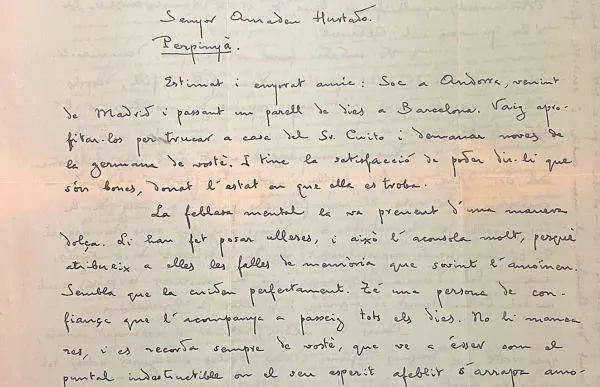 Senyor Amadeu Hurtado.
Perpinyà.
Estimat i enyorat amic: Soc a Andorra, venint
de Madrid i passant un parell de dies a Barcelona. Vaig apro-
fitar-los per trucar a casa del Sr. Cuito i demanar noves de
la germana de vostè. I tinc la satisfacció de poder dir-li que
són bones, donat l'estat en que ella es troba.
La feblesa mental la va prenent d'una manera
dolça. Li han fet posar ulleres, i això l'aconsola molt, perquè
atribueix a elles les falles de memòria que sovint l'amoïnen.
Sembla que la cuiden perfectament. Té una persona de con-
fiança que l'acompanya a passeig tots els dies. No li manca
res, i es recorda sempre de vostè, que ve a ésser com el
puntal indestructible on el seu esperit afeblit s'arrapa amo-